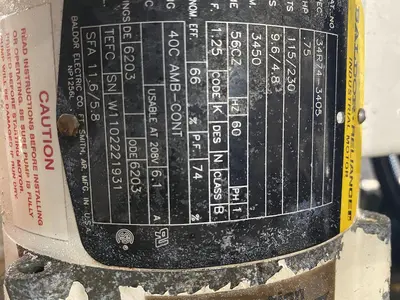 BALDOR·RELIANCE
INDUSTRIAL MOTOR
SPEC. 34R24-3405
HP .75
115/230
9.6/4.8
3450
56CZ HZ 60 PH 1
S.F. 1.25 CODE K DES N CLASS B
66 % P.F. 74 %
40C AMB-CONT
USABLE AT 208V 6.1 A
DE 6203 ODE 6203
TEFC SN W1102221931
SFA 11.6/5.8
BALDOR ELECTRIC CO. FT. SMITH, AR. MFG. IN U.S.
NP1256L
CAUTION
READ INSTRUCTIONS
BEFORE INSTALLING
OR OPERATING.
BE SURE PUMP IS FULLY
BEFORE STARTING MOTOR.
IF RUN DRY.